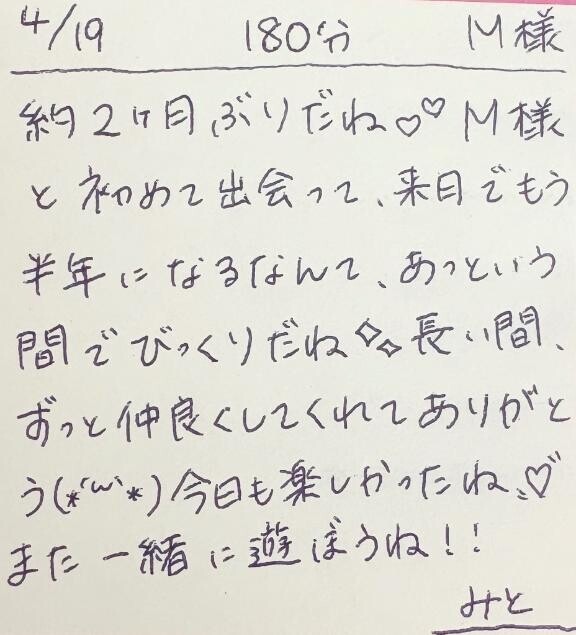 4/19 180分 M様
約2ヶ月ぶりだね♡♡M様
と初めて出会って、来月でもう
半年になるなんて、あっという
間でびっくりだね✧✧長い間、
ずっと仲良くしてくれてありがと
う(*´ω`*)今日も楽しかったね♡
また一緒に遊ぼうね！！
みと